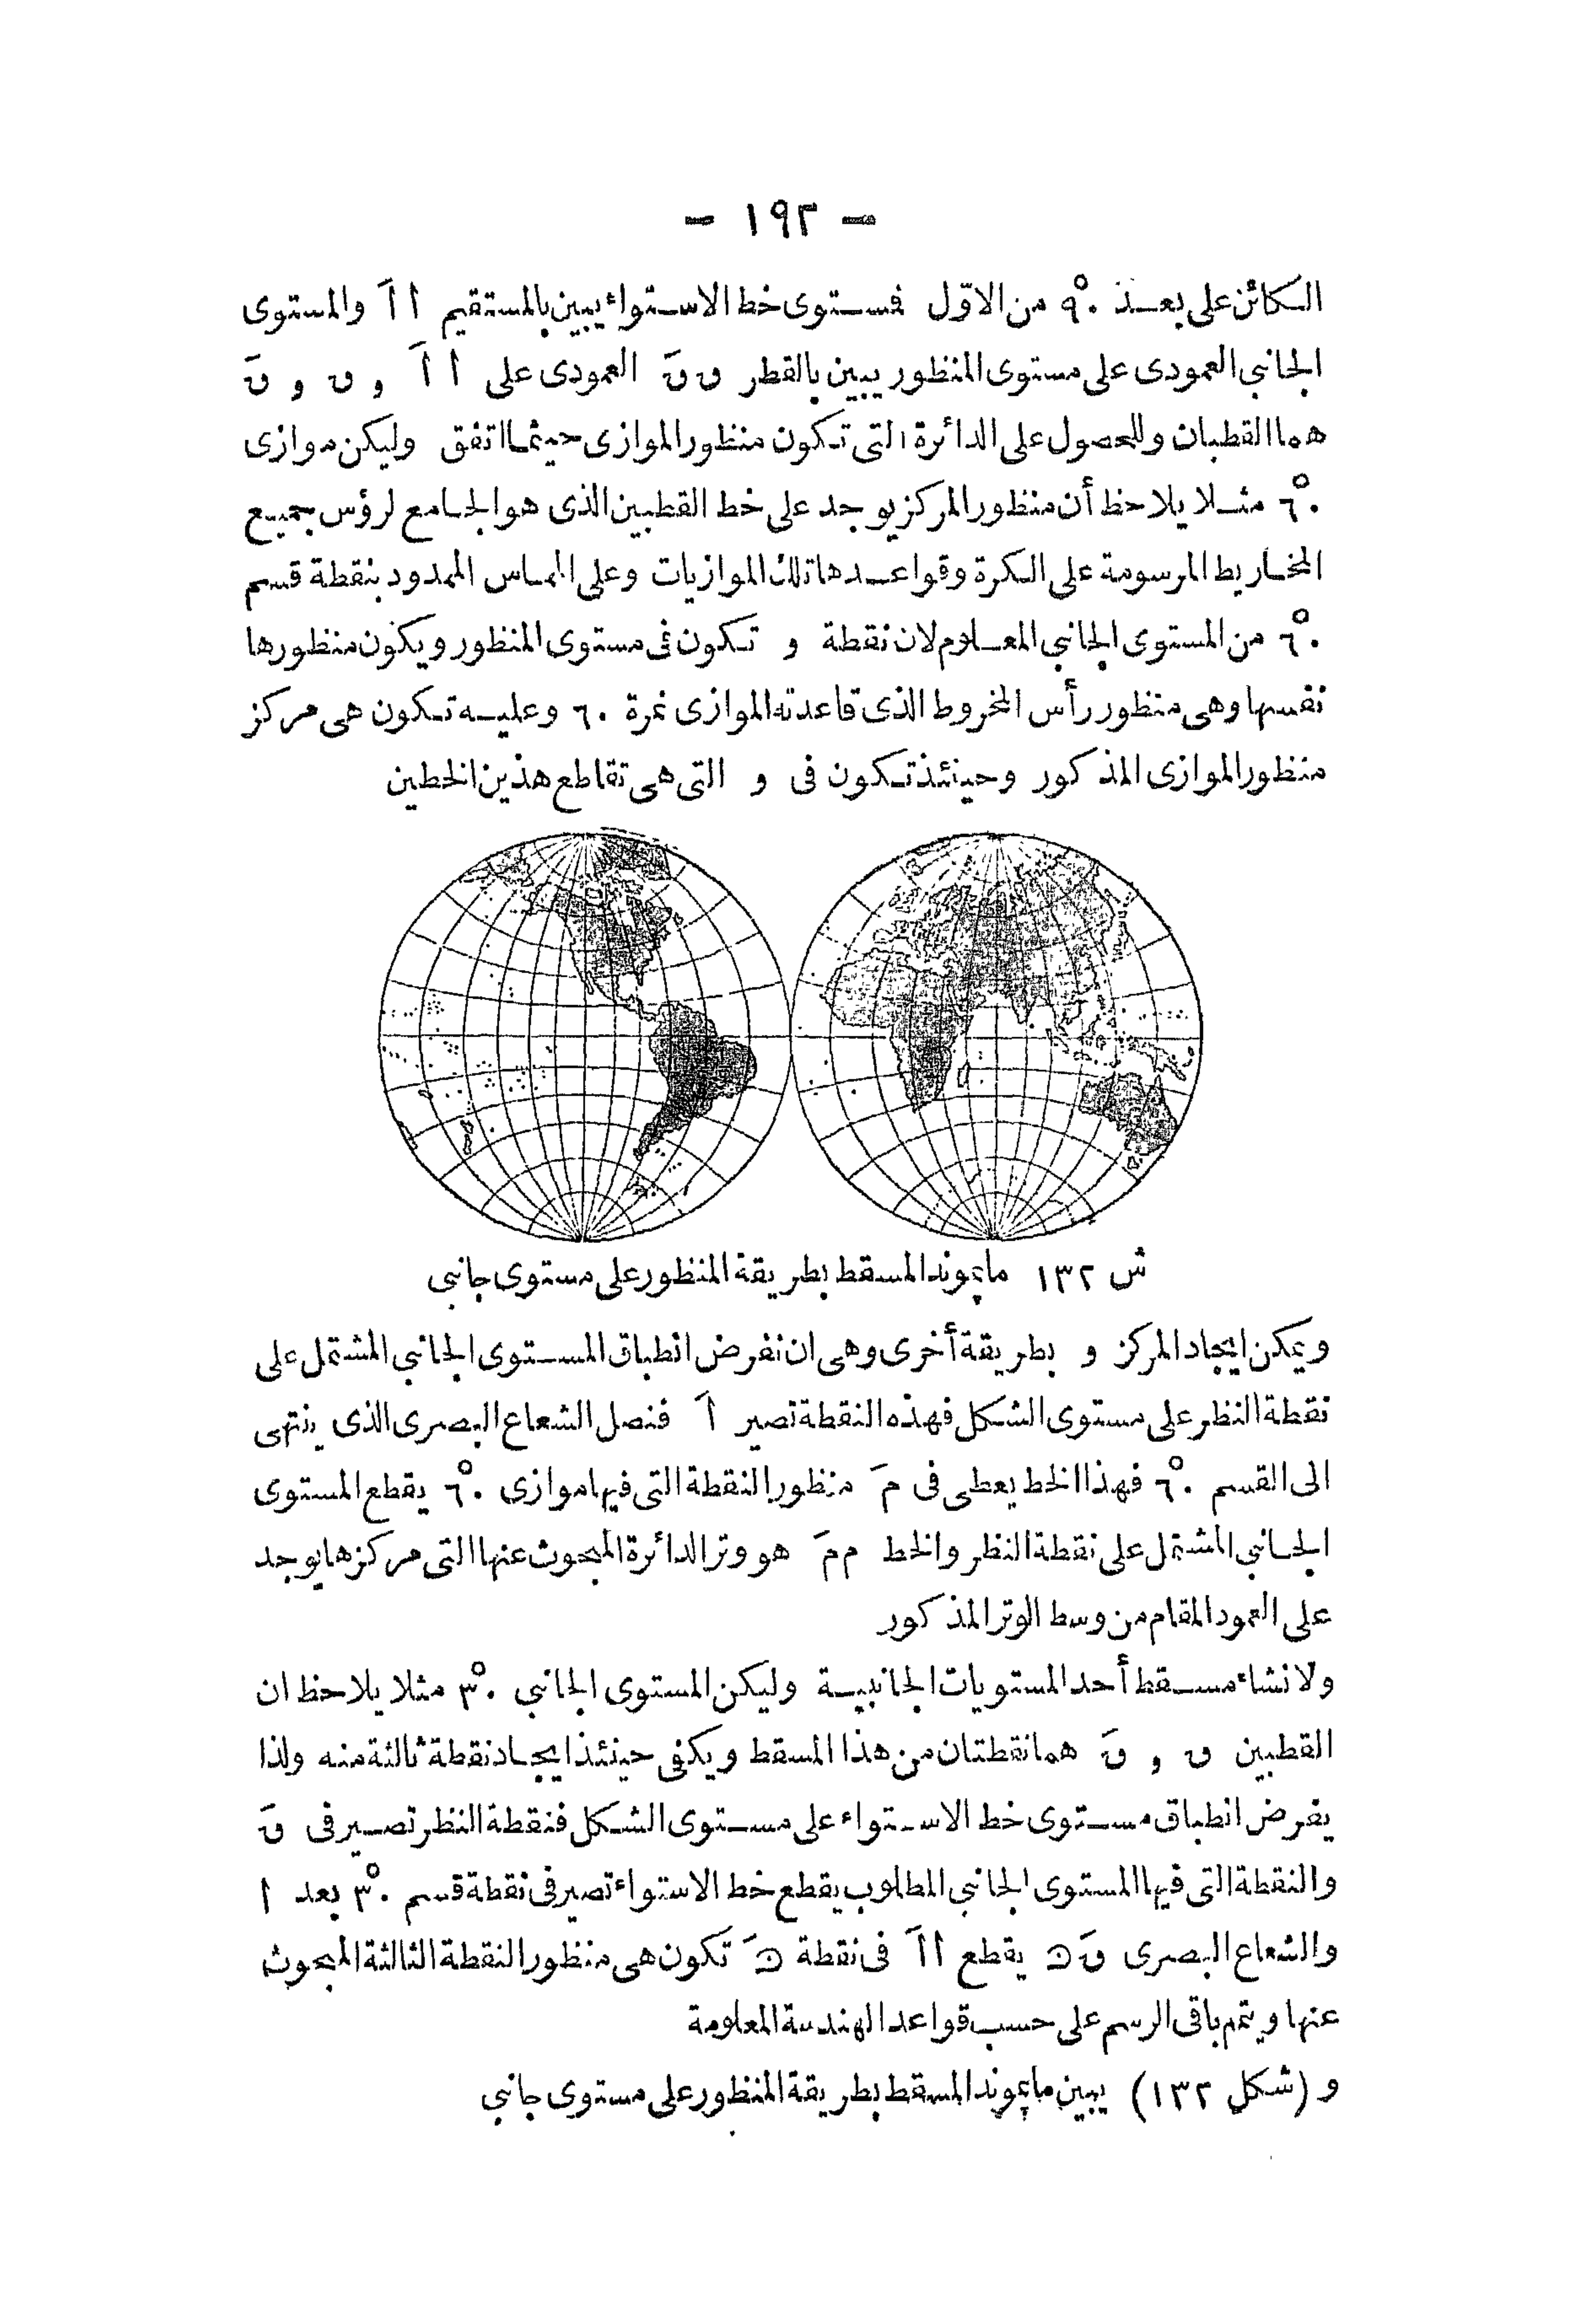 - ١٩٢ -
الكائن على بعد ٩٠° من الاوّل فمستوى خط الاستواء يبين بالمستقيم أ أَ والمستوى
الجانبى العمودى على مستوى المنظور يبين بالقطر ں قَ العمودى على أ أَ و ں و قَ
هما القطبان وللحصول على الدائرة التى تكون منظور الموازى حيثما اتفق وليكن موازى
٦٠° مثلا يلاحظ أن منظور المركز يوجد على خط القطبين الذى هو الجامع لرؤس جميع
المخاريط المرسومة على الكرة وقواعدها تلك الموازيات وعلى المماس الممدود بنقطة قسم
٦٠° من المستوى الجانبى المعلوم لان نقطة و تكون فى مستوى المنظور ويكون منظورها
نفسها وهى منظور رأس المخروط الذى قاعدته الموازى نمرة ٦٠ وعليه تكون هى مركز
منظور الموازى المذكور وحينئذ تكون فى و التى هى تقاطع هذين الخطين
ش ١٣٢ مابموند المسقط بطريقة المنظور على مستوى جانبى
ويمكن ايجاد المركز و بطريقة أخرى وهى ان نفرض انطباق المستوى الجانبى المشتمل على
نقطة النظر على مستوى الشكل فهذه النقطة تصير أَ فنصل الشعاع البصرى الذى ينتهى
الى القسم ٦٠° فهذا الخط يعطى فى مَ منظور النقطة التى فيها موازى ٦٠° يقطع المستوى
الجانبى المشتمل على نقطة النظر والخط م مَ هو وتر الدائرة المبحوث عنها التى مركزها يوجد
على العمود المقام من وسط الوتر المذكور
ولانشاء مسقط أحد المستويات الجانبية وليكن المستوى الجانبى ٣٠° مثلا يلاحظ ان
القطبين ں و قَ هما نقطتان من هذا المسقط ويكفى حينئذ ايجاد نقطة ثالثة منه ولذا
يفرض انطباق مستوى خط الاستواء على مستوى الشكل فنقطة النظر تصير فى قَ
والنقطة التى فيها المستوى الجانبى المطلوب يقطع خط الاستواء تصير فى نقطة قسم ٣٠° بعد أ
والشعاع البصرى قَ يقطع أ أَ فى نقطة تكون هى منظور النقطة الثالثة المبحوث
عنها ويتم باقى الرسم على حسب قواعد الهندسة المعلومة
و (شكل ١٣٢) يبين مابموند المسقط بطريقة المنظور على مستوى جانبى